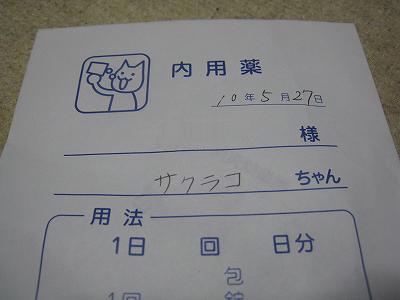 内用薬
10年5月27日
様
サクラコ ちゃん
用法
1日 回 日分
包
1回 錠